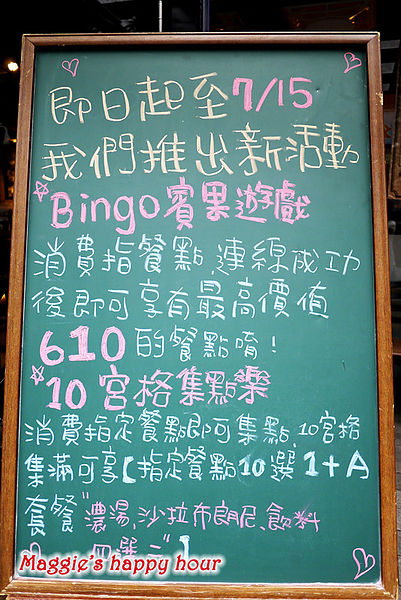 即日起至7/15
我們推出新活動
Bingo賓果遊戲
消費指餐點，連線成功
後即可享有最高價值
610的餐點唷！
10宮格集點樂
消費指定餐點即可集點，10宮格
集滿可享【指定餐點10選1+A
套餐"濃湯、沙拉布朗尼、飲料
四選二"】
Maggie's happy hour